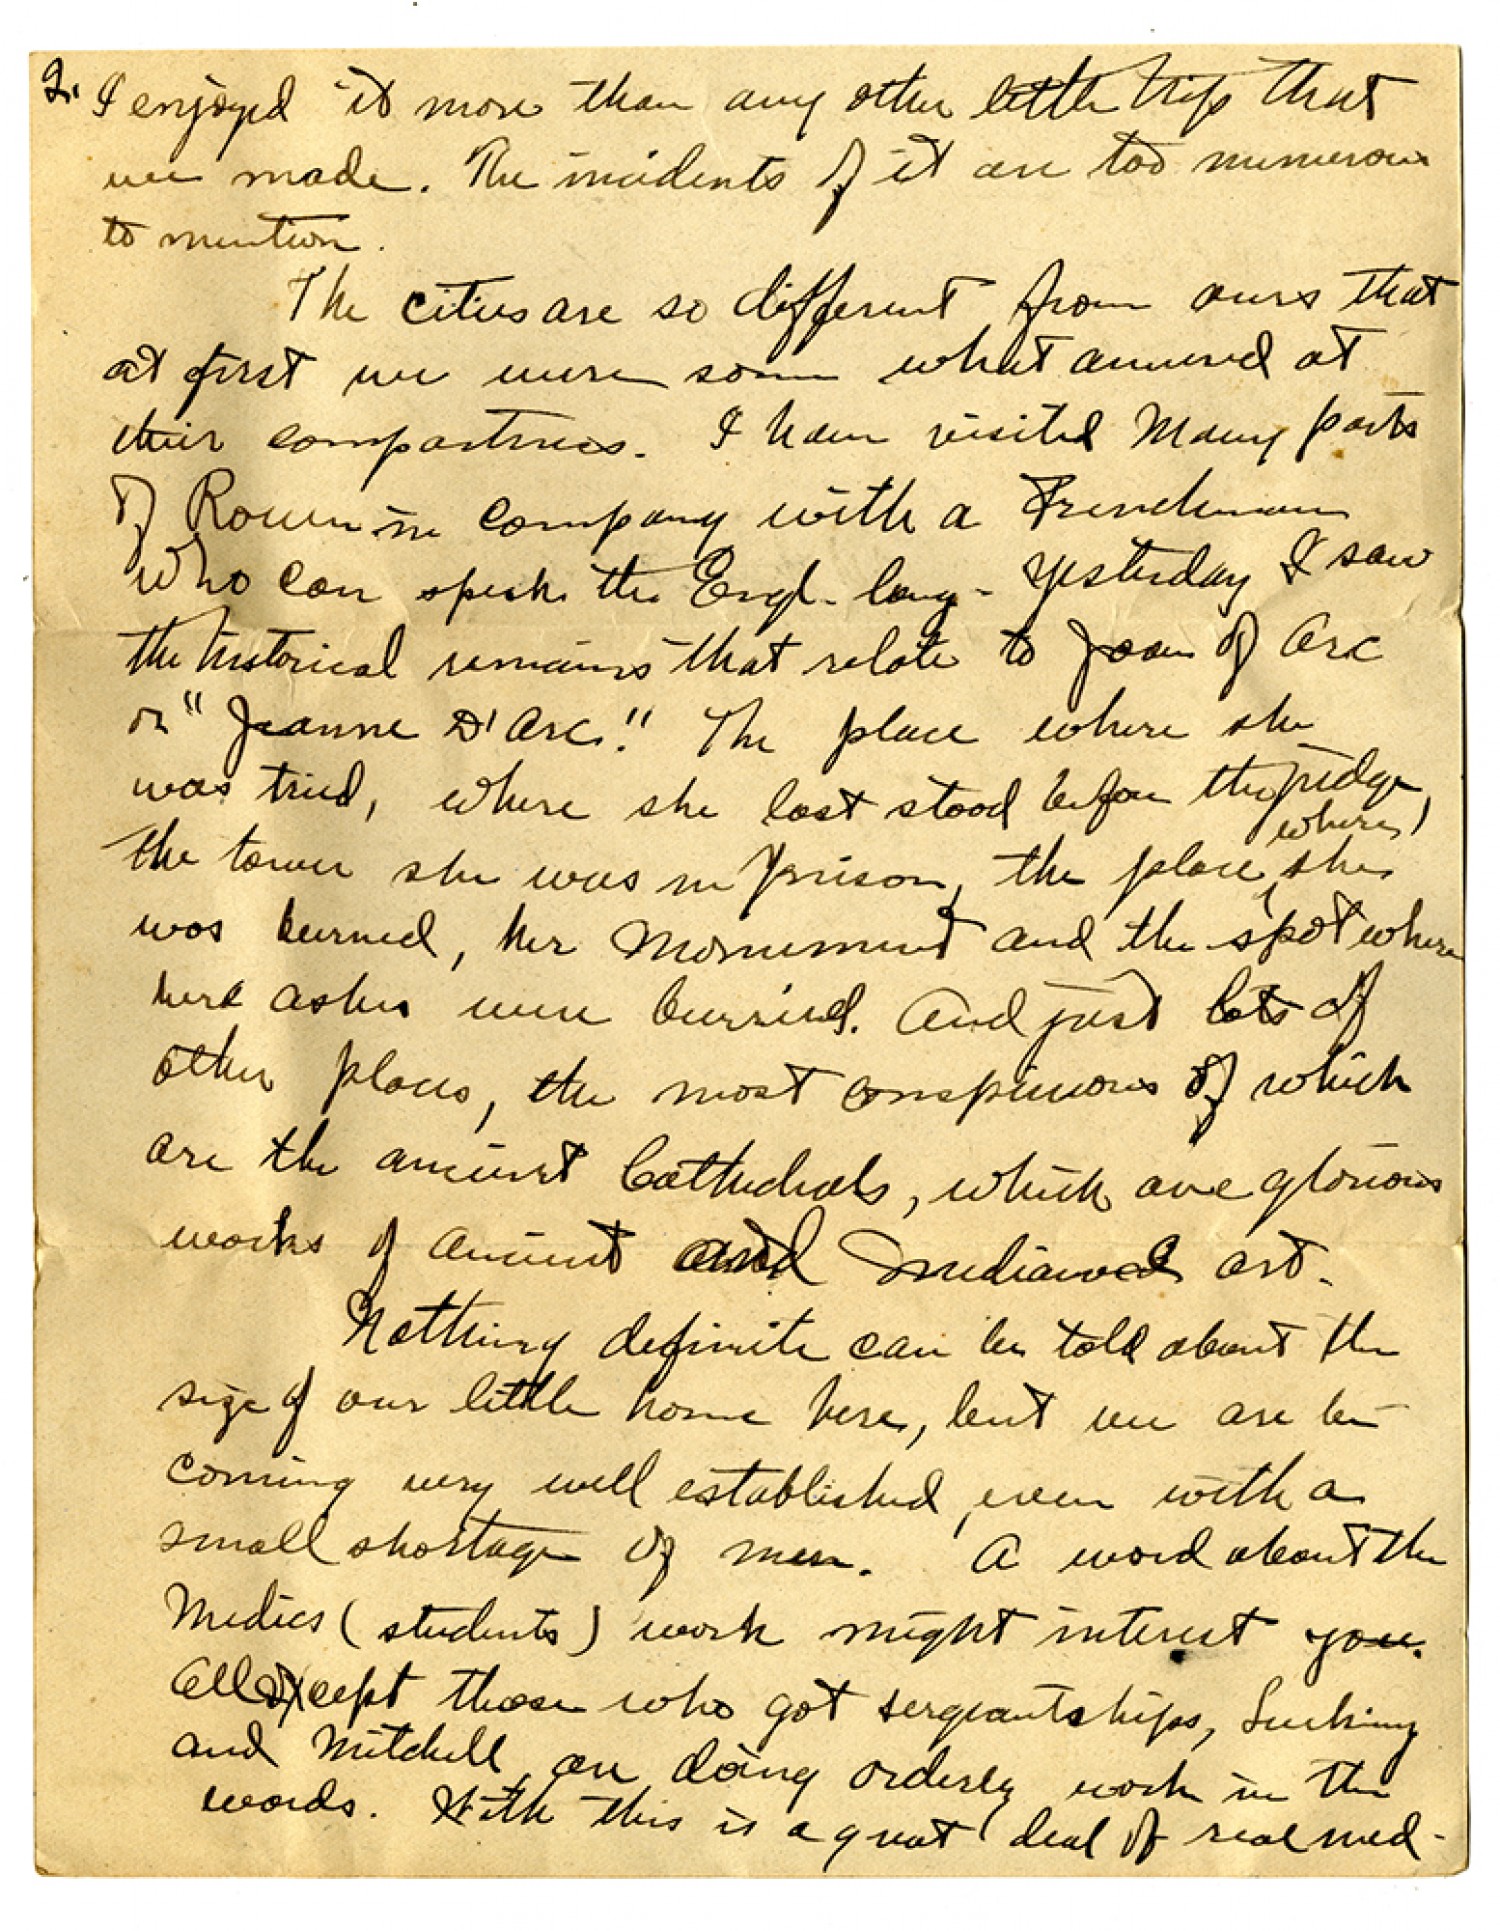 2. I enjoyed it more than any other little trips that
we made. The incidents of it are too numerous
to mention.
The cities are so different from ours that
at first we were some what amused at
their compactness. I have visited Many parts
of Rouen in company with a Frenchman
who can speak the Engl. lang. Yesterday I saw
the historical remains that relate to Joan of Arc
or "Jeanne D'Arc." The place where she
was tried, where she last stood before the judge,
where
the tower she was in prison, the place she
was burned, her Monument and the spot where
her ashes were burried. And just lots of
other places, the most conspicuous of which
are the ancient Cathedrals, which are glorious
works of ancient and mediaeval art.
Nothing definite can be told about the
size of our little home here, but we are be-
coming very well established, even with a
small shortage of men. A word about the
Medics (students) work might interest you.
All except those who got sergeantships,
and Mitchell, are doing orderly work in the
wards. With this is a great deal of real med-